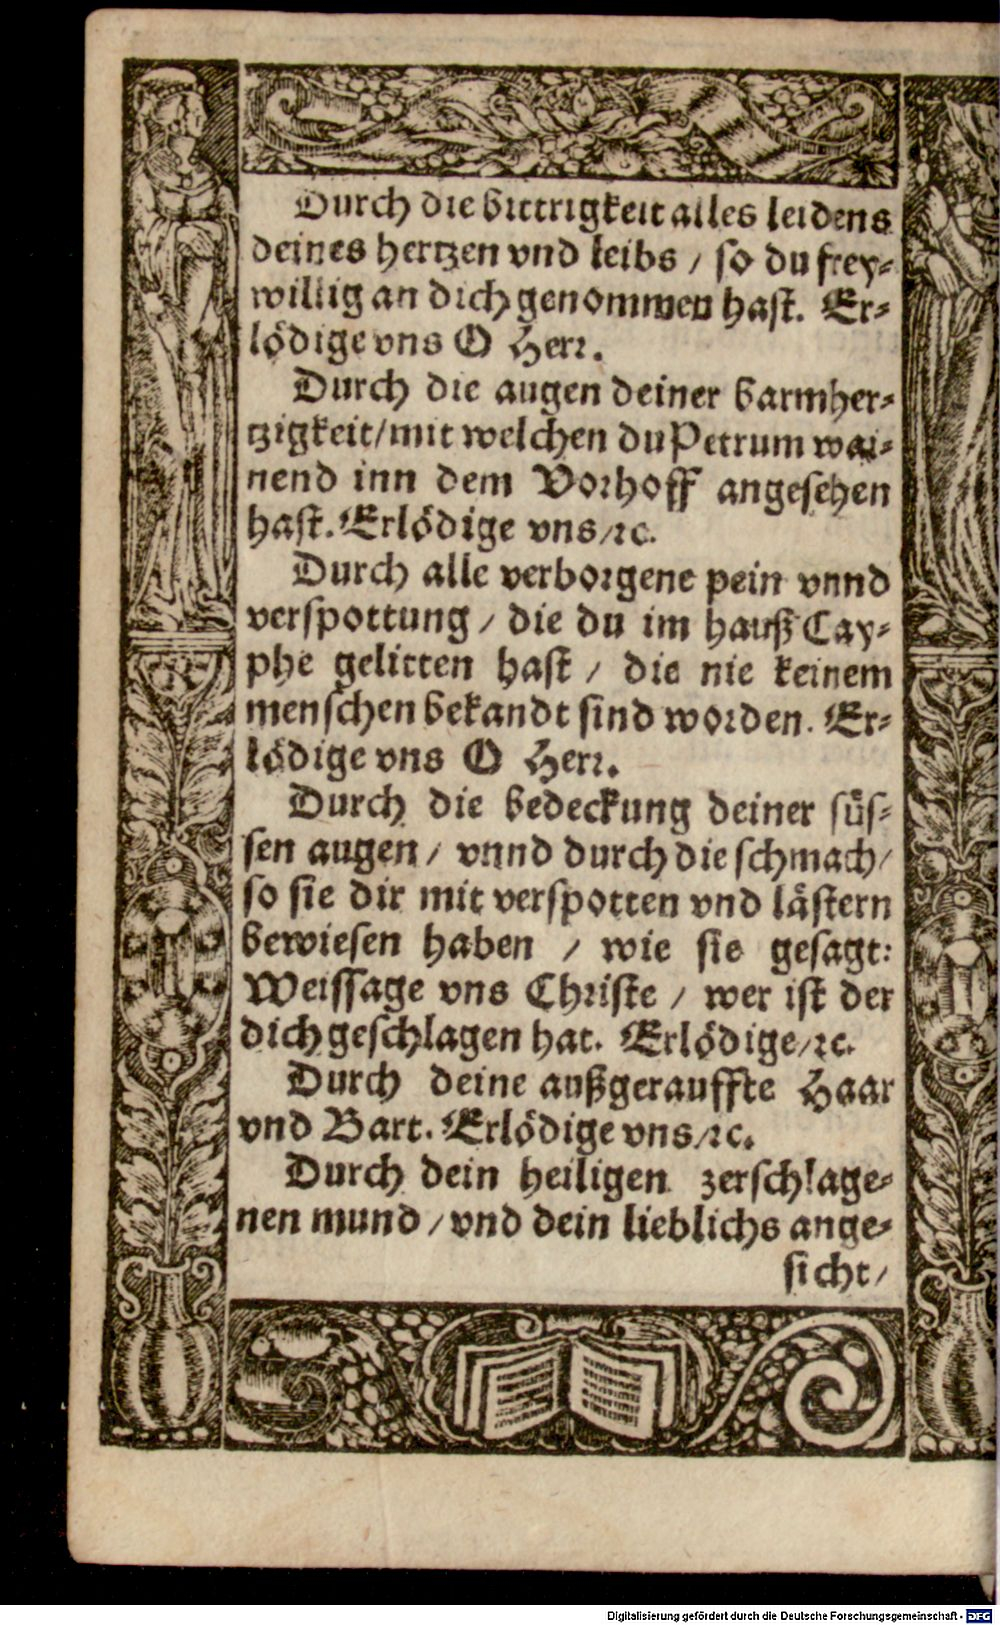 Durch die bittrigkeit alles leidens
deines hertzen vnd leibs / so du frey-
willig an dich genommen hast. Er-
lödige vns O Herr.
Durch die augen deiner barmher-
tzigkeit/mit welchen du Petrum wai-
nend inn dem Vorhoff angesehen
hast. Erlödige vns/ꝛc.
Durch alle verborgene pein vnnd
verspottung / die du im hauß Cay-
phe gelitten hast / die nie keinem
menschen bekandt sind worden. Er-
lödige vns O Herr.
Durch die bedeckung deiner süs-
sen augen / vnnd durch die schmach/
so sie dir mit verspotten vnd lästern
bewiesen haben / wie sie gesagt:
Weissage vns Christe / wer ist der
dich geschlagen hat. Erlödige/ꝛc.
Durch deine außgerauffte Haar
vnd Bart. Erlödige vns/ꝛc.
Durch dein heiligen zerschlage-
nen mund / vnd dein lieblichs ange-
sicht/
Digitalisierung gefördert durch die Deutsche Forschungsgemeinschaft - DFG